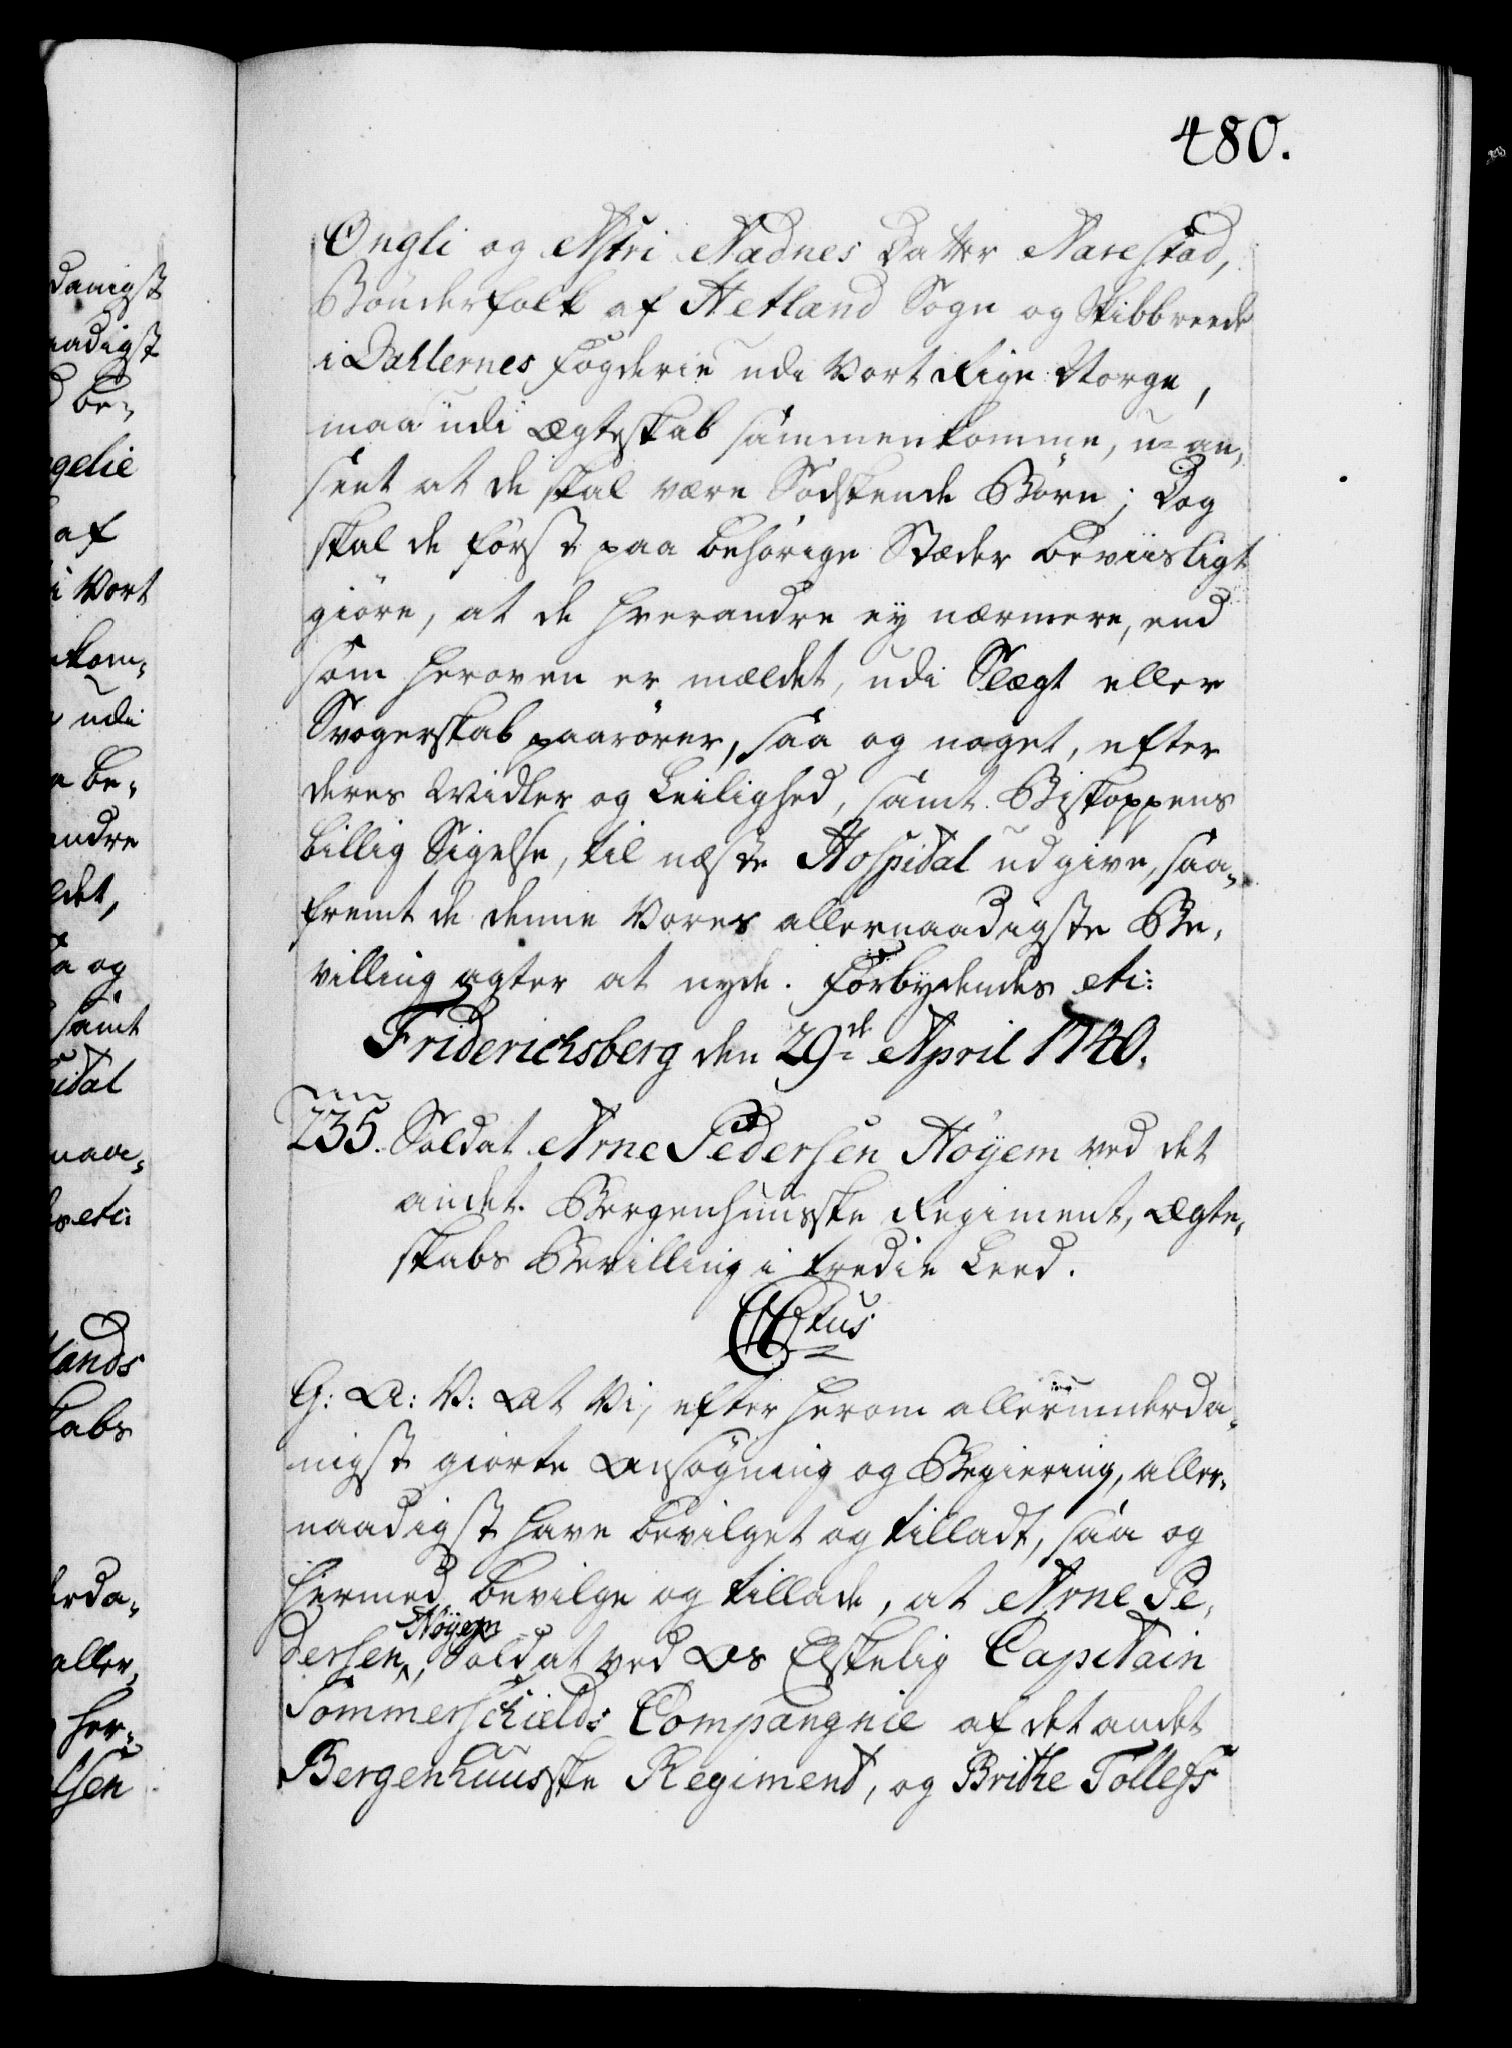 480.
Ongli og Astri Aadnes Datter Narestad,
Bönderfolk af Hetland Sogn og Skibbreede
i Dahlernes Fogderie udi Vort Rige Norge,
maa udi Ægteskab sammenkomme, u-an-
seet at de skal være Sødskende Børn; Dog
skal de først paa behörige Stæder beviisligt
giöre, at de hverandre ey nærmere, end
som heroven er meldet, udi Slægt eller
Svogerskab paarörer, saa og noget, efter
deres Midler og Leilighed, samt Biskoppens
billig Sigelse, til næste Hospital udgive, saa-
fremt de denne Vores allernaadigste Be-
villing agter at nyde. Forbydendes etc:
Friderichsberg den 29de April 1740.
235. Soldat Arne Pedersen Höyem ved det
andet Bergenhuusske Regiment, Ægte-
skabs Bevilling i tredie Leed.
CCtus
G: A: V: At Vi, efter herom allerunderda-
nigst giorte Ansögning og Begiering, aller-
naadigst have bevilget og tilladt, saa og
hermed bevilge og tillade, at Arne Pe-
dersen Höyem, Soldat ved Os Elskelig Capitain
Sommerschields Compangnie af det andet
Bergenhuusske Regiment, og Brithe Tollefs
danigst
aadigst
be-
gelie
af
i Vort
nkom-
udi
be-
andre
ldet,
a og
samt
pidal
naa-
s etc:
lands
kabs
erda-
aller-
her-
lsen